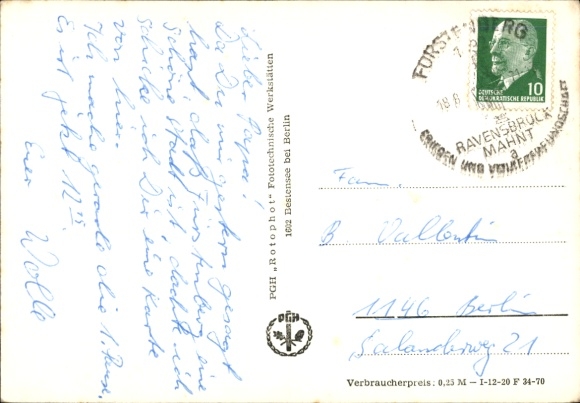 Lieber Papa!
Da Du mir gestern gesagt
hast, daß Fürstenberg eine
schöne Stadt ist, dacht ich
schicke ich Dir eine Karte
von hier.
Ich mache gerade die 1. Pause.
Es ist jetzt 12
Euer Wolle
PGH „Rotophot" Fototechnische Werkstätten
1602 Bestensee bei Berlin
PGH
FÜRSTENBERG
18.8.
RAVENSBRÜCK
MAHNT
a
FRIEDEN UND VÖLKERFREUNDSCHAFT
DEUTSCHE
DEMOKRATISCHE REPUBLIK
10
Fam.
B. Vallentin
1146 Berlin
Verbraucherpreis: 0,25 M — I-12-20 F 34-70